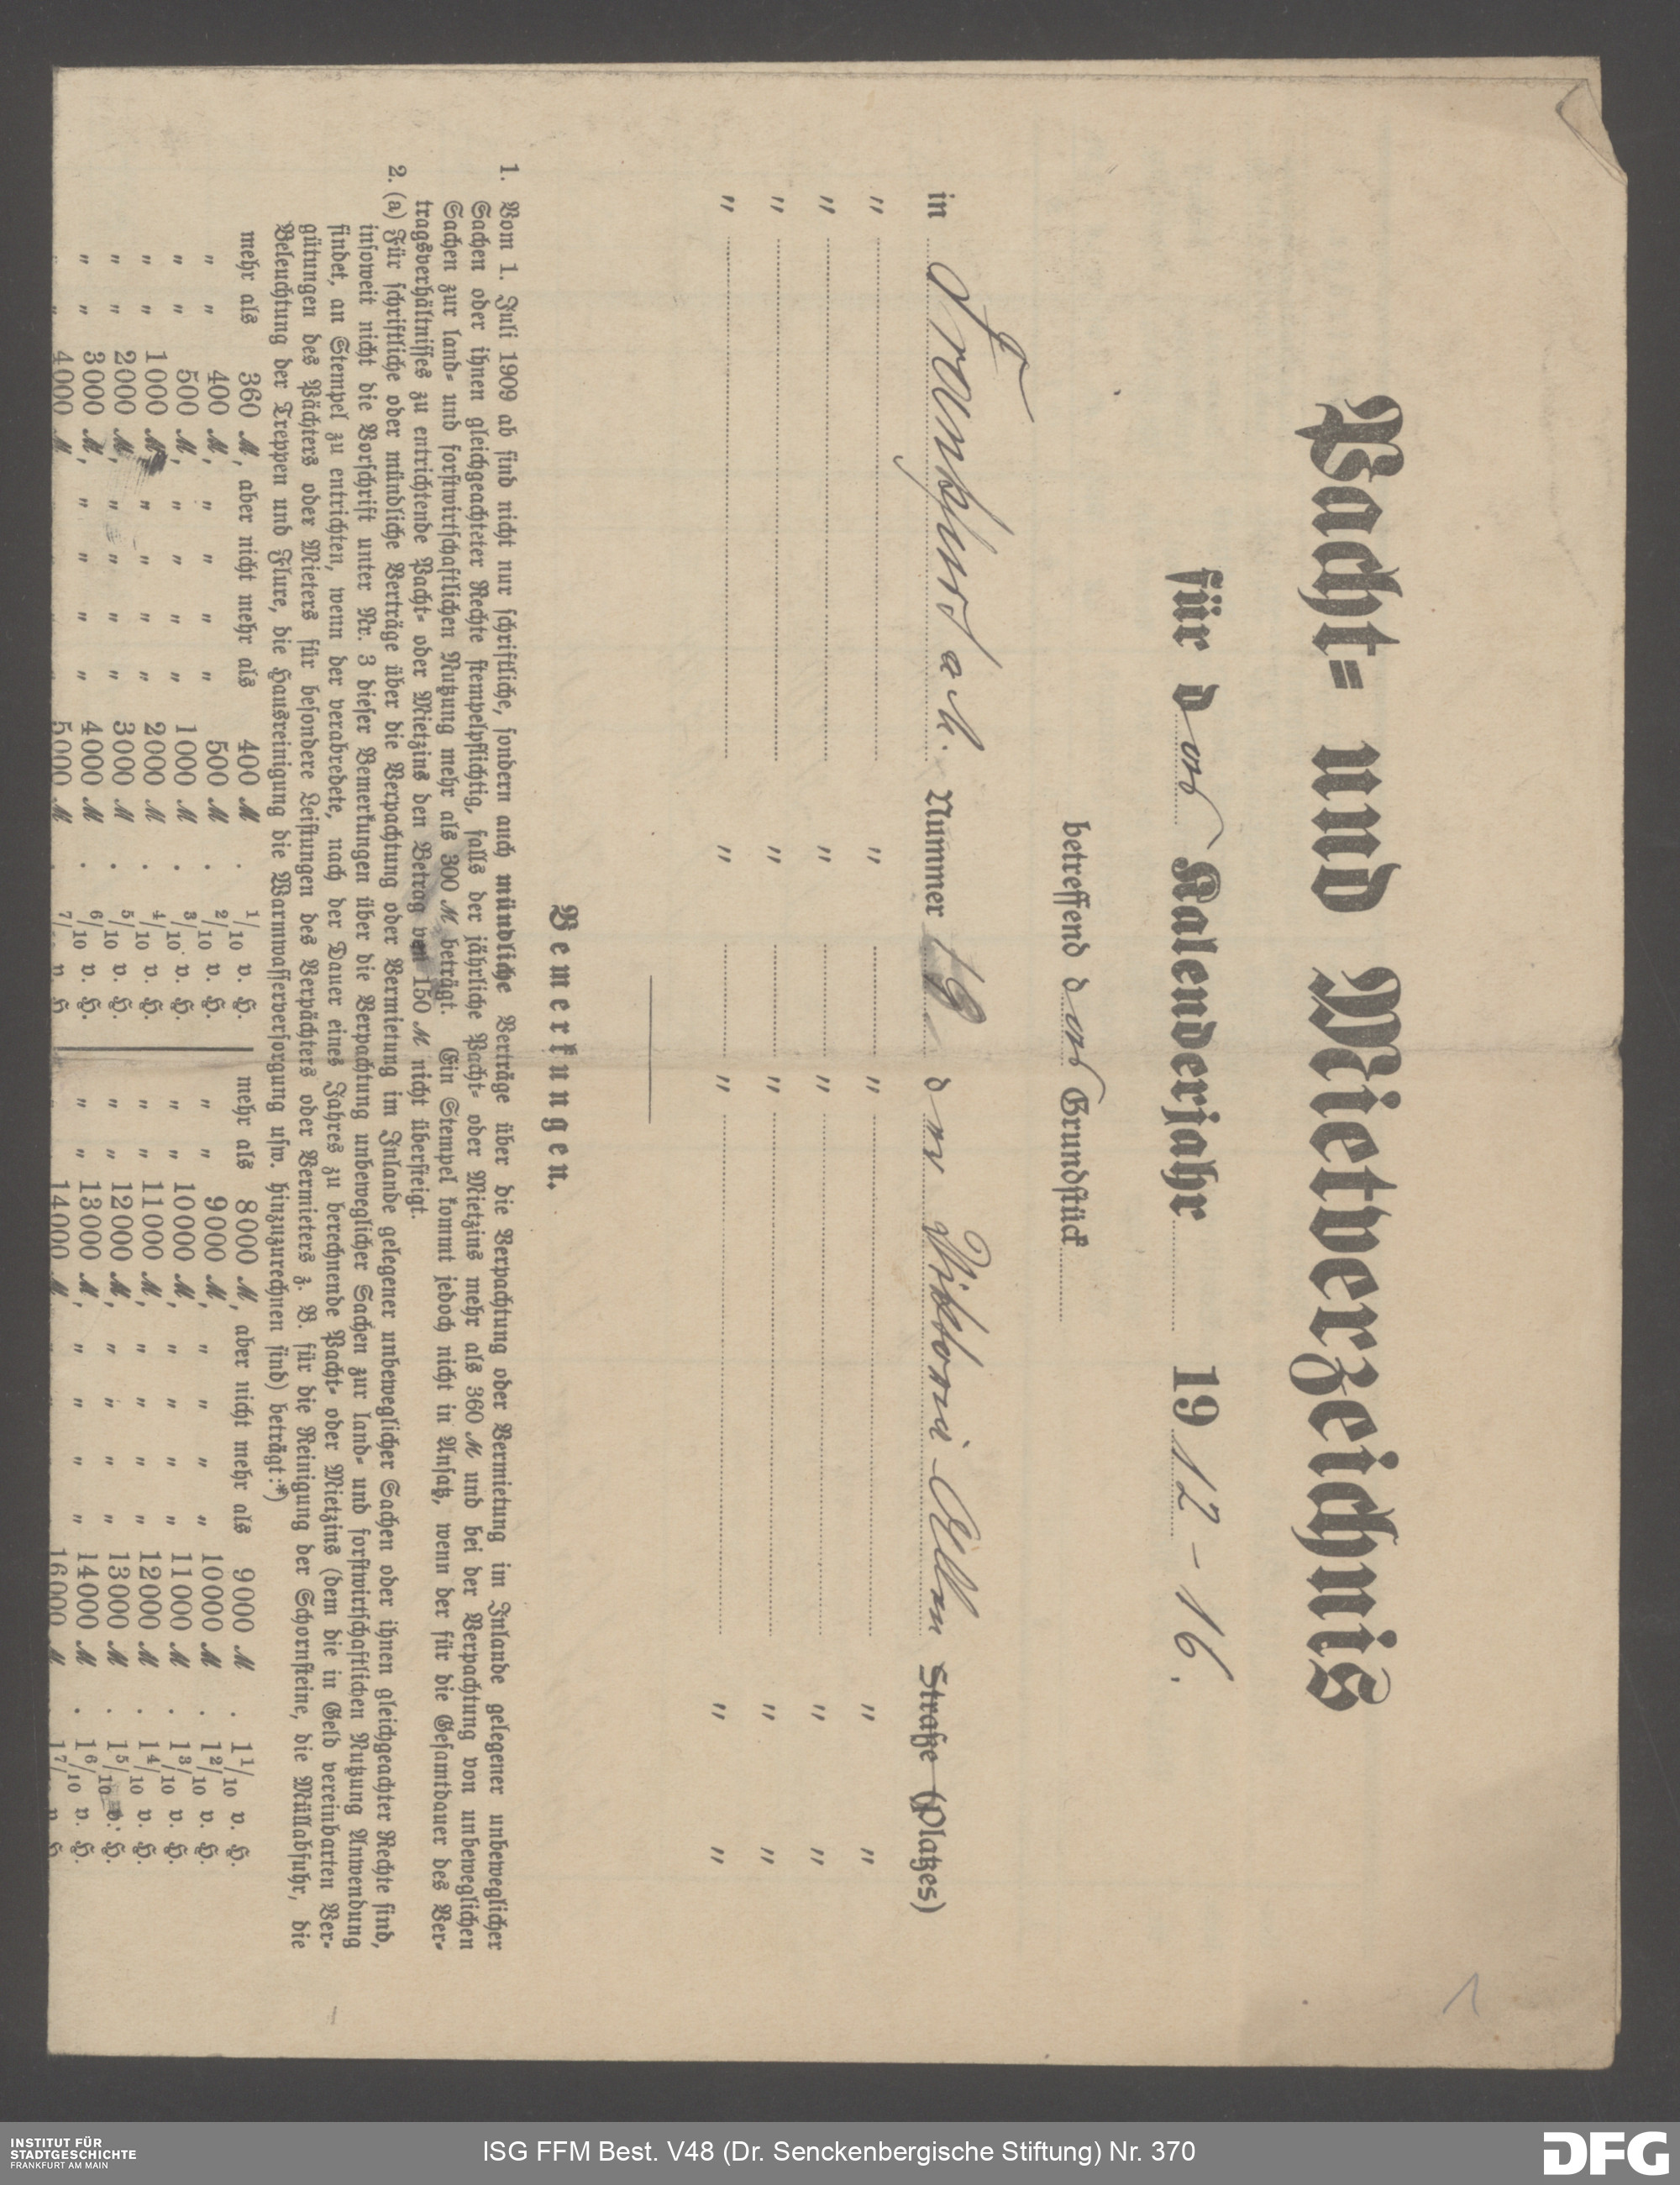 Pacht= und Mietverzeichnis
für das Kalenderjahr 1912-16.
betreffend das Grundstück
in Frankfurt a M. Nummer 19 der Viktoria-Allee Straße (Platzes)
" " " " "
" " " " "
" " " " "
" " " " "
Bemerkungen.
1. Vom 1. Juli 1909 ab sind nicht nur schriftliche, sondern auch mündliche Verträge über die Verpachtung oder Vermietung im Inlande gelegener unbeweglicher
Sachen oder ihnen gleichgeachteter Rechte stempelpflichtig, falls der jährliche Pacht- oder Mietzins mehr als 360 M und bei der Verpachtung von unbeweglichen
Sachen zur land- und forstwirtschaftlichen Nutzung mehr als 300 M beträgt. Ein Stempel kommt jedoch nicht in Ansatz, wenn der für die Gesamtdauer des Ver-
tragsverhältnisses zu entrichtende Pacht- oder Mietzins den Betrag von 150 M nicht übersteigt.
2. (a) Für schriftliche oder mündliche Verträge über die Verpachtung oder Vermietung im Inlande gelegener unbeweglicher Sachen oder ihnen gleichgeachter Rechte sind,
insoweit nicht die Vorschrift unter Nr. 3 dieser Bemerkungen über die Verpachtung unbeweglicher Sachen zur land- und forstwirtschaftlichen Nutzung Anwendung
findet, an Stempel zu entrichten, wenn der verabredete, nach der Dauer eines Jahres zu berechnende Pacht- oder Mietzins (dem die in Geld vereinbarten Ver-
gütungen des Pächters oder Mieters für besondere Leistungen des Verpächters oder Vermieters z. B. für die Reinigung der Schornsteine, die Müllabfuhr, die
Beleuchtung der Treppen und Flure, die Hausreinigung die Warmwasserversorgung usw. hinzuzurechnen sind) beträgt:*)
mehr als 360 M, aber nicht mehr als 400 M . 1/10 v. H. mehr als 8000 M, aber nicht mehr als 9000 M . 1 1/10 v. H.
" " 400 M, " " " " 500 M . 2/10 v. H. " " 9000 M, " " " " 10000 M . 1 2/10 v. H.
" " 500 M, " " " " 1000 M . 3/10 v. H. " " 10000 M, " " " " 11000 M . 1 3/10 v. H.
" " 1000 M, " " " " 2000 M . 4/10 v. H. " " 11000 M, " " " " 12000 M . 1 4/10 v. H.
" " 2000 M, " " " " 3000 M . 5/10 v. H. " " 12000 M, " " " " 13000 M . 1 5/10 v. H.
" " 3000 M, " " " " 4000 M . 6/10 v. H. " " 13000 M, " " " " 14000 M . 1 6/10 v. H.
" " 4000 M, " " " " 5000 M . 7/ v. H " " 14000 M, " " " " 16000 M . 1 7/ v. H
1
INSTITUT FÜR
STADTGESCHICHTE
FRANKFURT AM MAIN
ISG FFM Best. V48 (Dr. Senckenbergische Stiftung) Nr. 370
DFG